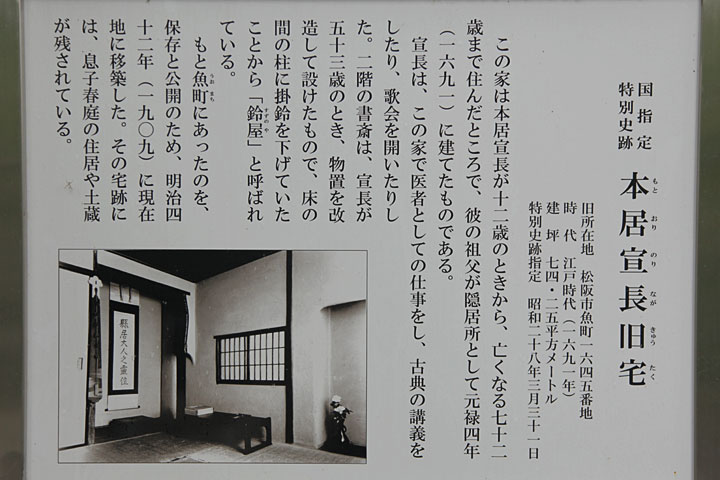 国指定
特別史跡
本居宣長旧宅
もとおりのりながきゅうたく
旧所在地 松阪市魚町一六四五番地
時代 江戸時代（一六九一年）
建坪 七四・二五平方メートル
特別史跡指定 昭和二十八年三月三十一日
この家は本居宣長が十二歳のときから、亡くなる七十二
歳まで住んだところで、彼の祖父が隠居所として元禄四年
（一六九一）に建てたものである。
宣長は、この家で医者としての仕事をし、古典の講義を
したり、歌会を開いたりし
た。二階の書斎は、宣長が
五十三歳のとき、物置を改
造して設けたもので、床の
間の柱に掛鈴を下げていた
ことから「鈴屋」と呼ばれ
すずのや
ている。
もと魚町にあったのを、
うおまち
保存と公開のため、明治四
十二年（一九〇九）に現在
地に移築した。その宅跡に
は、息子春庭の住居や土蔵
が残されている。
縣居大人之霊位